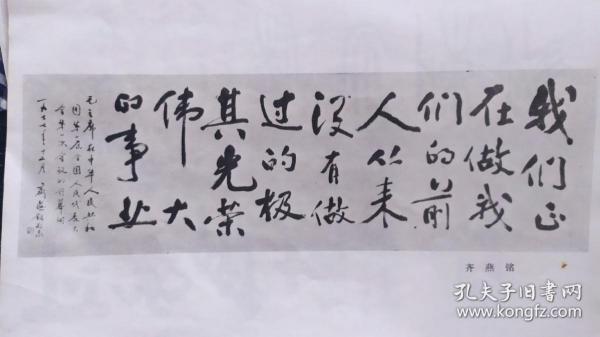 我们正
在做我
们的前
人从来
没有做
过的极
其光荣
伟大
的事业
毛主席在中华人民共和
国第一届全国人民代表大
会第一次会议的开幕词
齐燕铭
孔夫子旧书网
www.kongfz.com